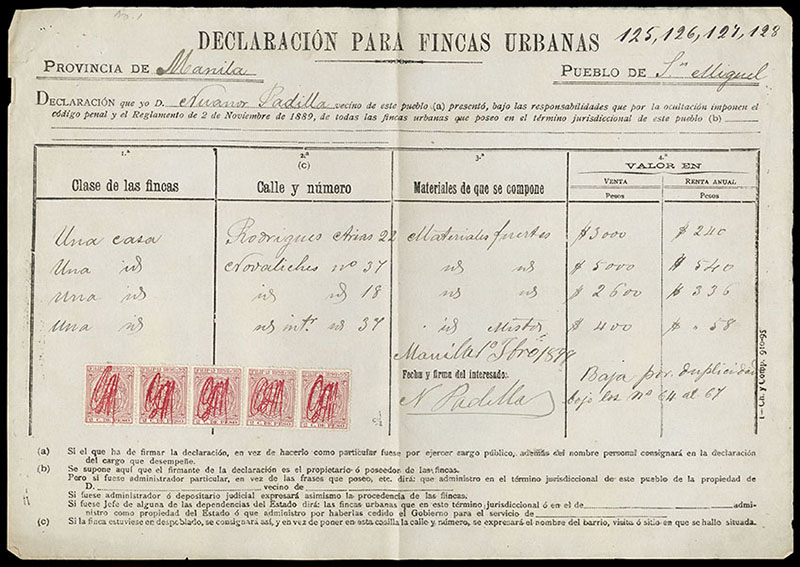 125, 126, 127, 128
DECLARACIÓN PARA FINCAS URBANAS
PROVINCIA DE Manila PUEBLO DE Sn Miguel
DECLARACIÓN que yo D. Padilla vecino de este pueblo (a) presentó, bajo las responsabilidades que por la ocultación imponen el
código penal y el Reglamento de 2 de Noviembre de 1889, de todas las fincas urbanas que poseo en el término jurisdiccional de este pueblo (b)
1.ª 2.ª 3.ª 4.ª
(C) VALOR EN
Clase de las fincas Calle y número Materiales de que se compone VENTA RENTA ANUAL
Pesos Pesos
Una casa Rodrigues Arias 22 Materiales fuertes $ 3000 $ 240
Una id Novaliches nº 37 id id $ 5000 $ 540
Una id id id 18 id id $ 2600 $ 336
Una id id intr id 37 id Mistos $ 400 $ " 58
Manila 1º 1898
Fecha y firma del interesado:
N Padilla
Baja por duplicidad
bajo los nº 64 al 67
1—Ch. y Comp. 910-95
(a) Si el que ha de firmar la declaración, en vez de hacerlo como particular fuese por ejercer cargo público, además del nombre personal consignará en la declaración
del cargo que desempeñe.
(b) Se supone aquí que el firmante de la declaración es el propietario ó poseedor de las fincas.
Pero si fuese administrador particular, en vez de las frases que poseo, etc. dirá: que administro en el término jurisdiccional de este pueblo de la propiedad de
D. vecino de
Si fuese administrador ó depositario judicial expresará asimismo la procedencia de las fincas.
Si fuese Jefe de alguna de las dependencias del Estado dirá: las fincas urbanas que en este término jurisdiccional ó en el de admi-
nistro como propiedad del Estado ó que administro por haberlas cedido el Gobierno para el servicio de
(c) Si la finca estuviese en despoblado, se consignará así, y en vez de poner en esta casilla la calle y número, se expresará el nombre del barrio, visita ó sitio en que se halle situada.